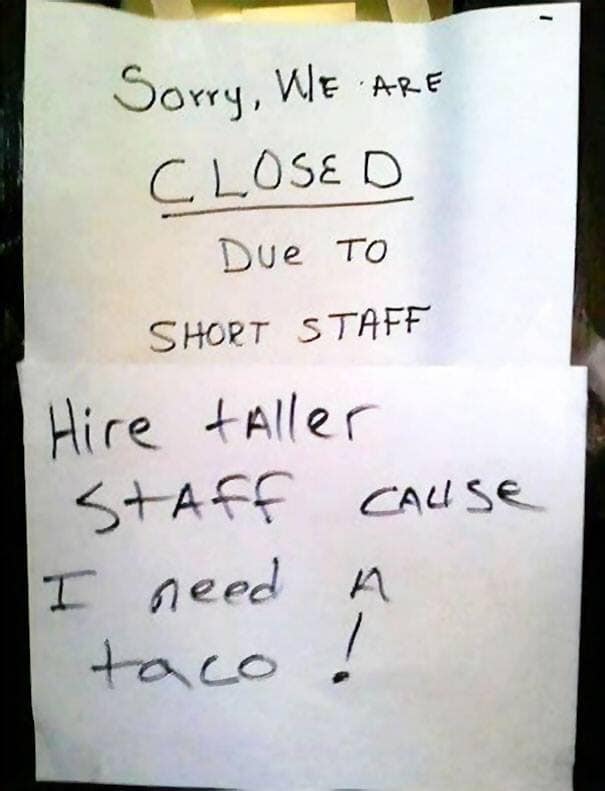 Sorry, WE ARE
CLOSED
Due TO
SHORT STAFF
Hire tAller
StAff CAUSe
I need A
taco !